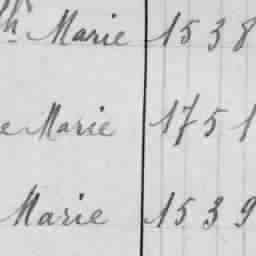 th Marie 1538
e Marie 1751
Marie 1539